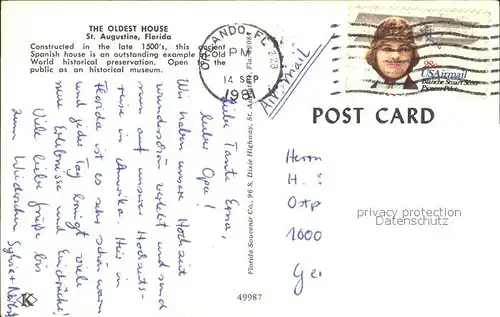 THE OLDEST HOUSE
St. Augustine, Florida
Constructed in the late 1500's, this ancient
Spanish house is an outstanding example of Old
World historical preservation. Open to the
public as an historical museum.
ORLANDO, FL 328
PM
14 SEP
1981
USAirmail
Blanche Stuart Scott
Pioneer Pilot
Air-Mail
POST CARD
Liebe Tante Erna,
lieber Opa!
Wir haben unsere Hochzeit
wunderschön verlebt und sind
nun auf unserer Hochzeits-
reise in Amerika. Hier in
Florida ist es sehr schön warm
und jeder Tag bringt viele
neue Erlebnisse und Eindrücke!
Viele liebe Grüße bis
zum Wiedersehen Sylvia +
Florida Souvenir Co., 96 S. Dixie Highway, St. Augustine, Fla. 32084
Herrn
H.
Ostp
1000
Ger
49987
K
privacy protection
AnsichtskartenVersand.com